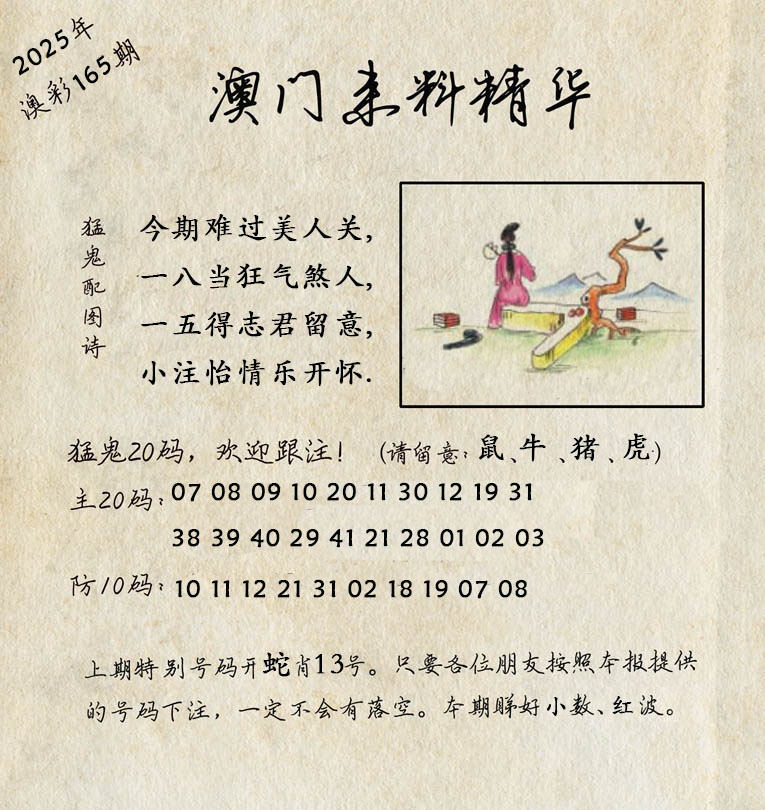 2025年
澳彩165期
澳门来料精华
猛鬼配图诗
今期难过美人关,
一八当狂气煞人,
一五得志君留意,
小注怡情乐开怀.
猛鬼20码，欢迎跟注！（请留意：鼠、牛、猪、虎）
主20码：07 08 09 10 20 11 30 12 19 31
38 39 40 29 41 21 28 01 02 03
防10码：10 11 12 21 31 02 18 19 07 08
上期特别号码开蛇肖13号。只要各位朋友按照本报提供
的号码下注，一定不会有落空。本期睇好小数、红波。